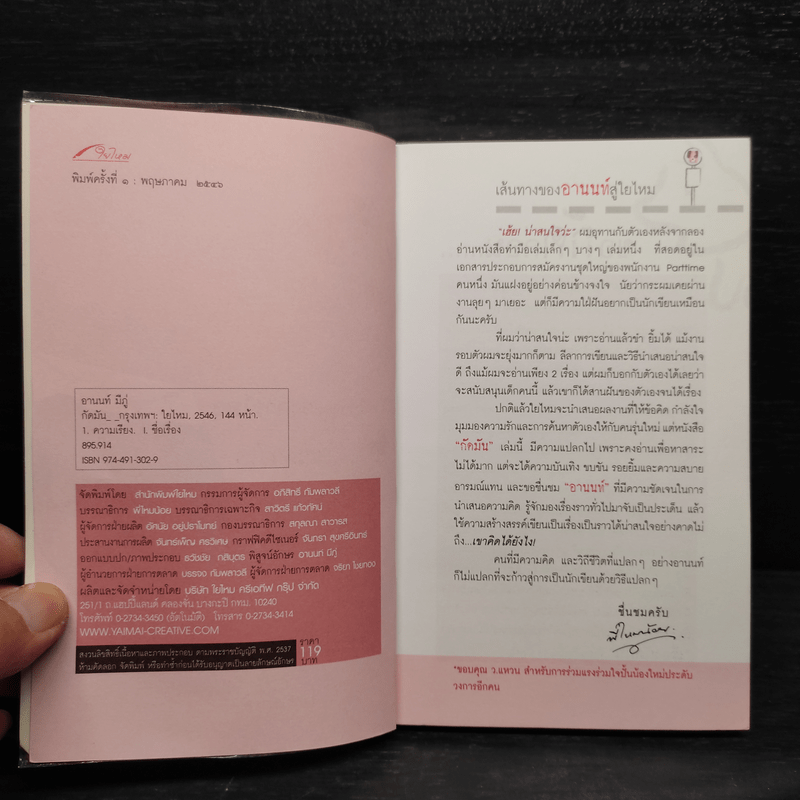 ใยไหม
พิมพ์ครั้งที่ ๑ : พฤษภาคม ๒๕๔๖
อานนท์ มีภู่
กัดมัน_ _กรุงเทพฯ: ใยไหม, 2546, 144 หน้า.
1. ความเรียง. I. ชื่อเรื่อง
895.914
ISBN 974-491-302-9
จัดพิมพ์โดย สำนักพิมพ์ใยไหม กรรมการผู้จัดการ อภิสิทธิ์ กัมพลาวลี
บรรณาธิการ พี่ใหมน้อย บรรณาธิการเฉพาะกิจ สาวิตรี แก้วทัศน์
ผู้จัดการฝ่ายผลิต อัศนัย อยู่ปราโมทย์ กองบรรณาธิการ สกุลณา สาวารส
ประสานงานการผลิต จันทร์เพ็ญ ศรวิเศษ กราฟฟิคดีไซเนอร์ จันทรา สุขศรีอินทร์
ออกแบบปก/ภาพประกอบ ธวัชชัย กสิบุตร พิสูจน์อักษร อานนท์ มีภู่
ผู้อำนวยการฝ่ายการตลาด บรรจง กัมพลาวลี ผู้จัดการฝ่ายการตลาด จริยา ไชยทอง
ผลิตและจัดจำหน่ายโดย บริษัท ใยไหม ครีเอทีฟ กรุ๊ป จำกัด
251/1 ถ.แฮปปี้แลนด์ คลองจั่น บางกะปิ กทม. 10240
โทรศัพท์ 0-2734-3450 (อัตโนมัติ) โทรสาร 0-2734-3414
WWW.YAIMAI-CREATIVE.COM
สงวนลิขสิทธิ์เนื้อหาและภาพประกอบ ตามพระราชบัญญัติ พ.ศ. 2537
ห้ามคัดลอก จัดพิมพ์ หรือทำซ้ำก่อนได้รับอนุญาตเป็นลายลักษณ์อักษร
ราคา
119
บาท
เส้นทางของอานนท์สู่ใยไหม
"เฮ้ย! น่าสนใจว่ะ" ผมอุทานกับตัวเองหลังจากลอง
อ่านหนังสือทำมือเล่มเล็กๆ บางๆ เล่มหนึ่ง ที่สอดอยู่ใน
เอกสารประกอบการสมัครงานชุดใหญ่ของพนักงาน Parttime
คนหนึ่ง มันแฝงอยู่อย่างค่อนข้างจงใจ นัยว่ากระผมเคยผ่าน
งานลุยๆ มาเยอะ แต่ก็มีความใฝ่ฝันอยากเป็นนักเขียนเหมือน
กันนะครับ
ที่ผมว่าน่าสนใจน่ะ เพราะอ่านแล้วขำ ยิ้มได้ แม้งาน
รอบตัวผมจะยุ่งมากก็ตาม ลีลาการเขียนและวิธีนำเสนอน่าสนใจ
ดี ถึงแม้ผมจะอ่านเพียง 2 เรื่อง แต่ผมก็บอกกับตัวเองได้เลยว่า
จะสนับสนุนเด็กคนนี้ แล้วเขาก็ได้สานฝันของตัวเองจนได้เรื่อง
ปกติแล้วใยไหมจะนำเสนอผลงานที่ให้ข้อคิด กำลังใจ
มุมมองความรักและการค้นหาตัวเองให้กับคนรุ่นใหม่ แต่หนังสือ
"กัดมัน" เล่มนี้ มีความแปลกไป เพราะคงอ่านเพื่อหาสาระ
ไม่ได้มาก แต่จะได้ความบันเทิง ขบขัน รอยยิ้มและความสบาย
อารมณ์แทน และขอชื่นชม "อานนท์" ที่มีความชัดเจนในการ
นำเสนอความคิด รู้จักมองเรื่องราวทั่วไปมาจับเป็นประเด็น แล้ว
ใช้ความสร้างสรรค์เขียนเป็นเรื่องเป็นราวได้น่าสนใจอย่างคาดไม่
ถึง...เขาคิดได้ยังไง!
คนที่มีความคิด และวิถีชีวิตที่แปลกๆ อย่างอานนท์
ก็ไม่แปลกที่จะก้าวสู่การเป็นนักเขียนด้วยวิธีแปลกๆ
ชื่นชมครับ
พี่ใหมน้อย
*ขอบคุณ ว.แหวน สำหรับการร่วมแรงร่วมใจปั้นน้องใหม่ประดับ
วงการอีกคน